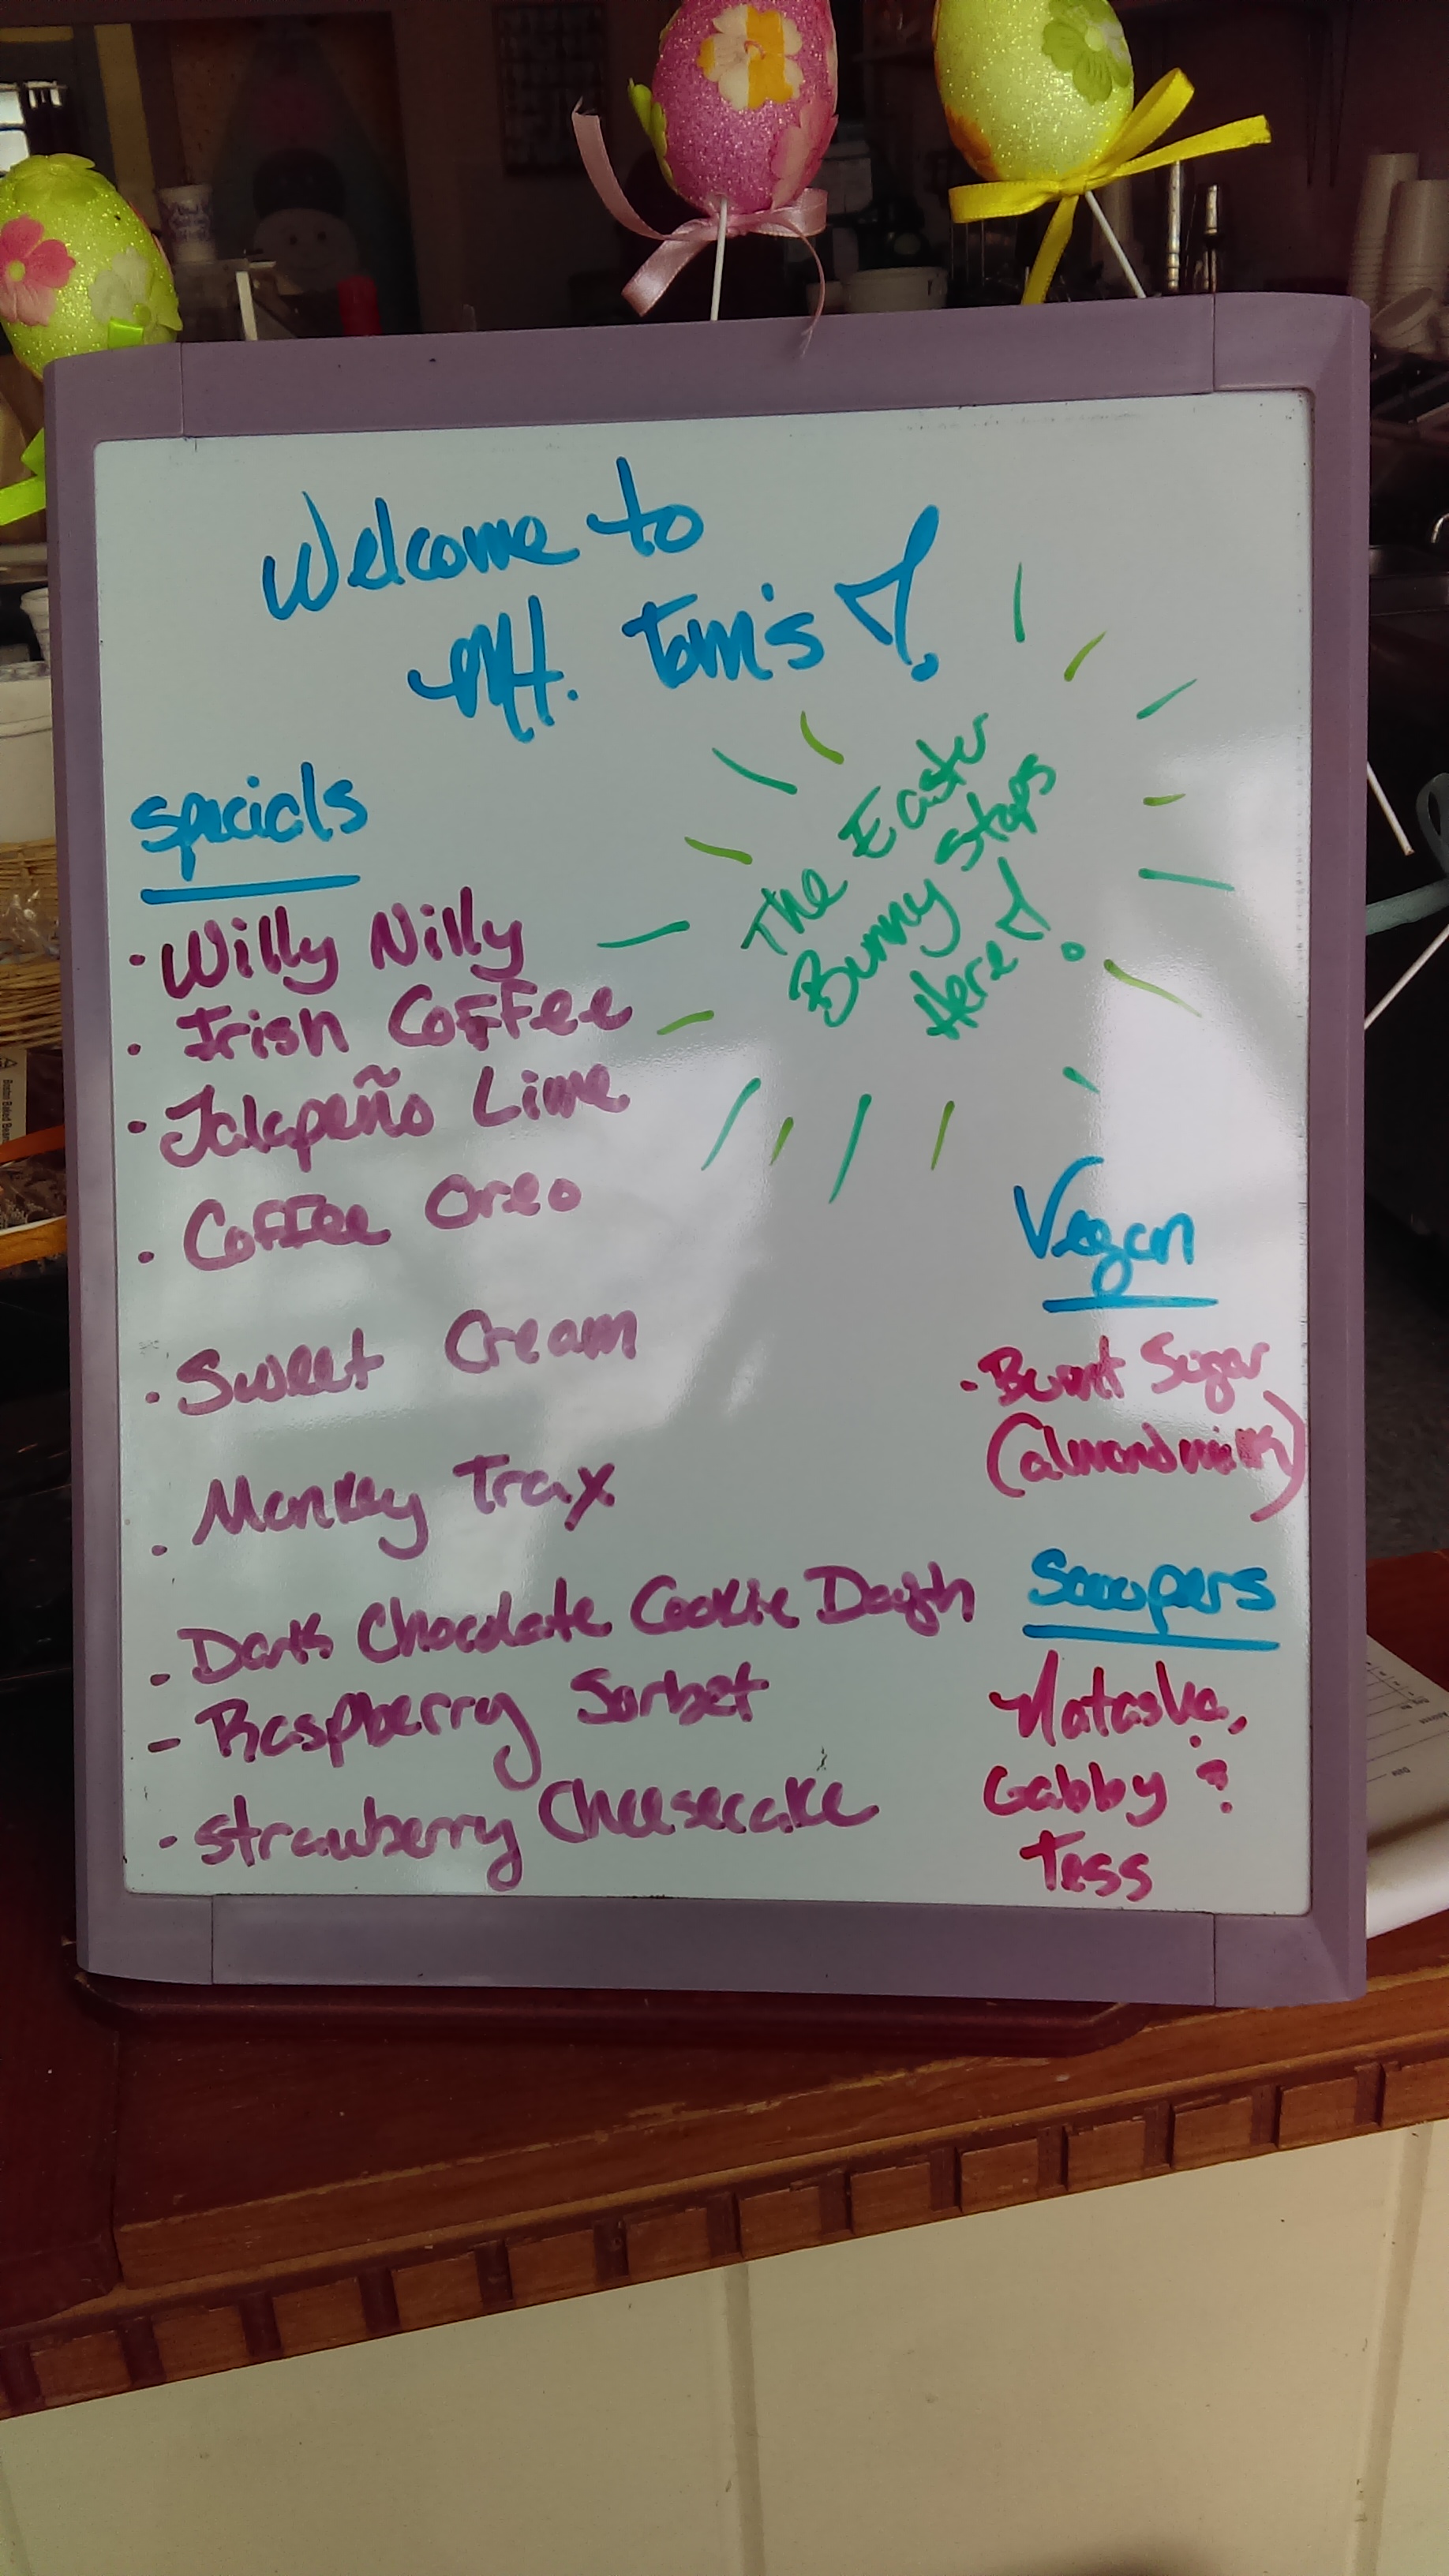 Welcome to
Mt. Tom's!
Specials
The Easter
Bunny Stops
Here!
• Willy Nilly
• Irish Coffee
• Jalapeño Lime
• Coffee Oreo
• Sweet Cream
• Monkey Trax
• Dark Chocolate Cookie Dough
- Raspberry Sorbet
• Strawberry Cheesecake
Vegan
• Burnt Sugar
(almond milk)
Scoopers
Natasha,
Gabby &
Tess
Boston Baked Beans